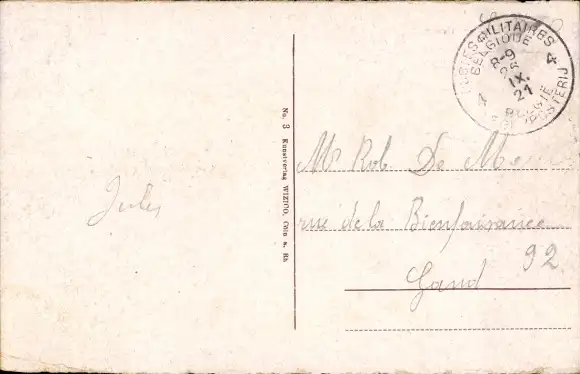 POSTES MILITAIRES
BELGIQUE
4 4
8-9
26
IX.
21
BELGIE
POSTERIJ
No. 3 Kunstverlag WIZICO, Cöln a. Rh
Mr Rob. De
rue de la Bienfaisance
92
Gand
Jules